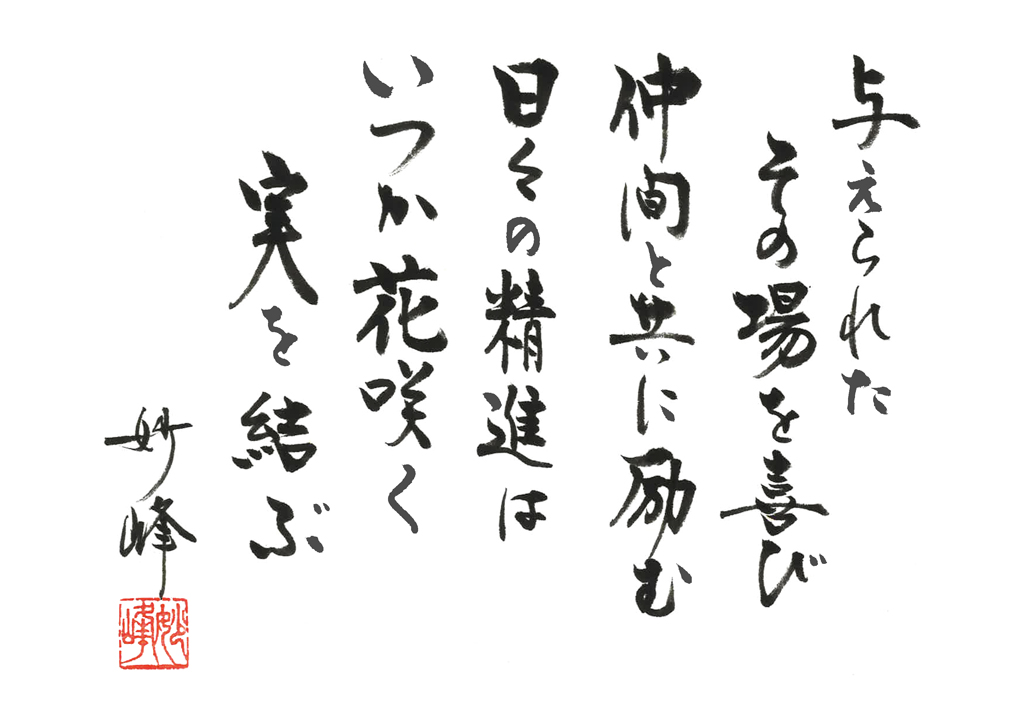 与えられた
その場を喜び
仲間と共に励む
日々の精進は
いつか花咲く
実を結ぶ
妙峰
妙峰